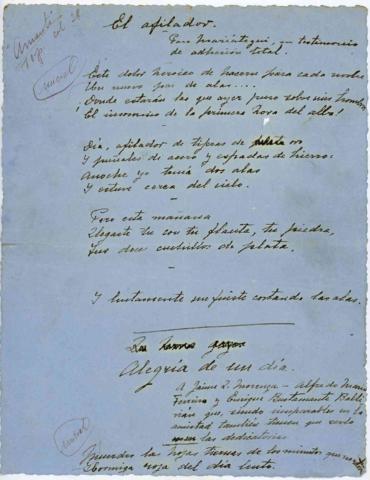 Amauta
El afilador.
Para Mariátegui, en testimonio
de adhesión total.
(inicial)
Este dolor heroico de hacerse para cada noche
Un nuevo par de alas...;
¿Donde estarán las que ayer puso sobre mis hombros
El insomnio de la primera hora del alba?
Día, afilador de tijeras de oro
Y puñales de acero y espadas de hierro:
Anoche yo tenía dos alas
Y estuve cerca del cielo.
Pero esta mañana
Llegaste tu con tu flauta, tu piedra,
tus doce cuchillos de plata.
Y lentamente me fuiste cortando las alas.
Alegría de un día.
A Jaime L. Morenza - Alfredo Mario
Ferreiro y Enrique Bustamante Balli
vián que, siendo inseparables en la
amistad también tienen que serlo
en las dedicatorias
(inicial)
Muerdes la hoja tierna de los minutos que nacen,
Hormiga roja del día lento.